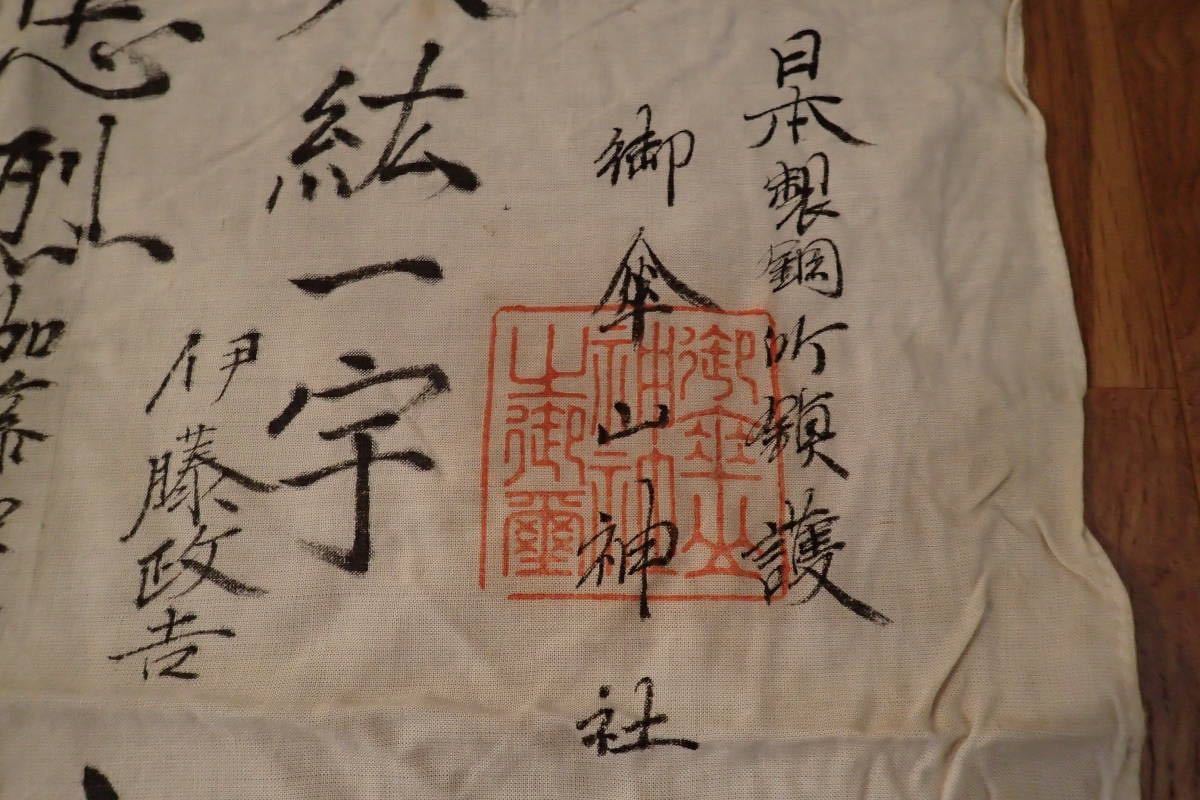 日本製鋼所鎮護
御傘山神社
御傘山
神社神
之御璽
紘一宇
伊藤政吉
烈
加藤